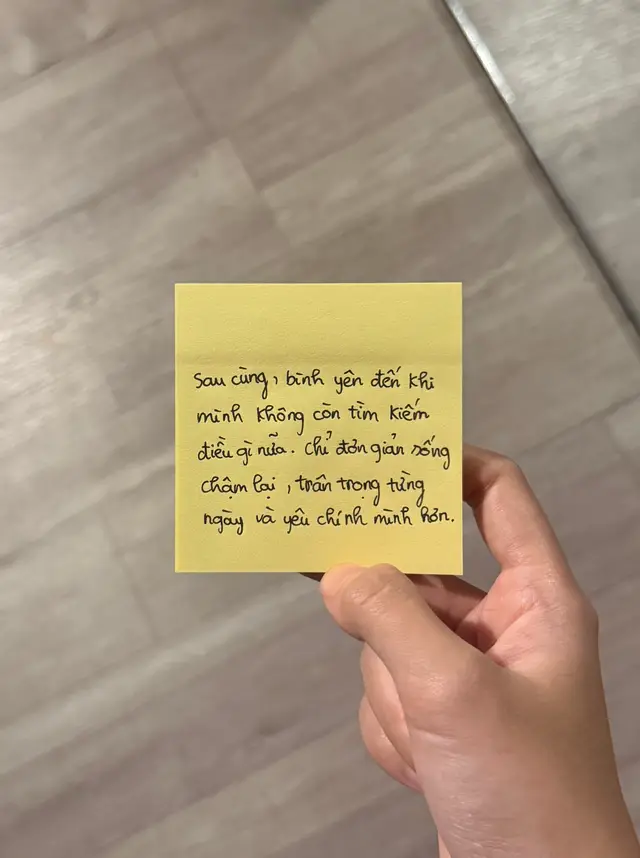 Sau cùng, bình yên đến khi
mình không còn tìm kiếm
điều gì nữa. Chỉ đơn giản sống
chậm lại, trân trọng từng
ngày và yêu chính mình hơn.